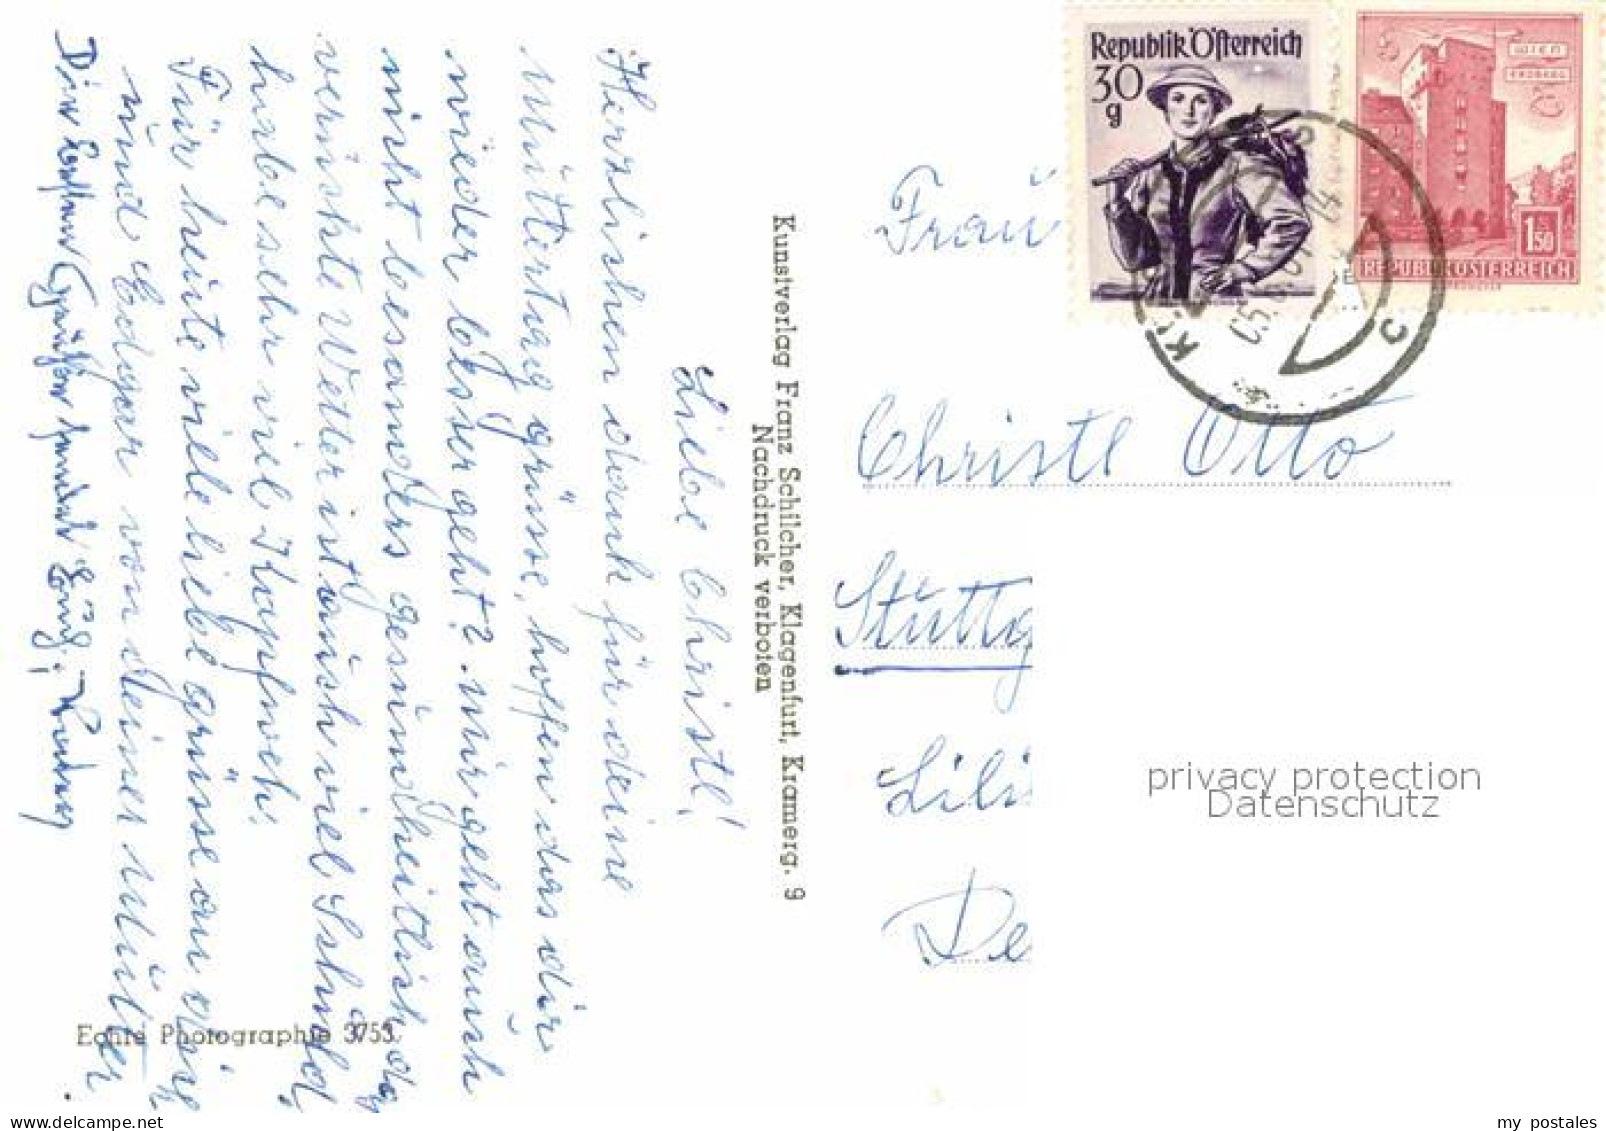 Liebe Christl!
Herzlichen dank für deine
Muttertag grüsse, hoffen das dir
wieder besser geht? mir geht auch
nicht besonders gesundheitlich da
verückte Wetter ist auch viel Schuld,
habe sehr viel Kopfweh.
Für heute viele liebe grüsse an dich
und Edgar von deiner Mutter
Kunstverlag Franz Schilcher, Klagenfurt, Kramerg. 9
Nachdruck verboten
Echte Photographie 3753
Republik Österreich
30
g
WIEN
ERDBERG
1.50
REPUBLIK ÖSTERREICH
Frau
Christl Otto
Stuttg
Lili
De
privacy protection
Datenschutz
my_postales